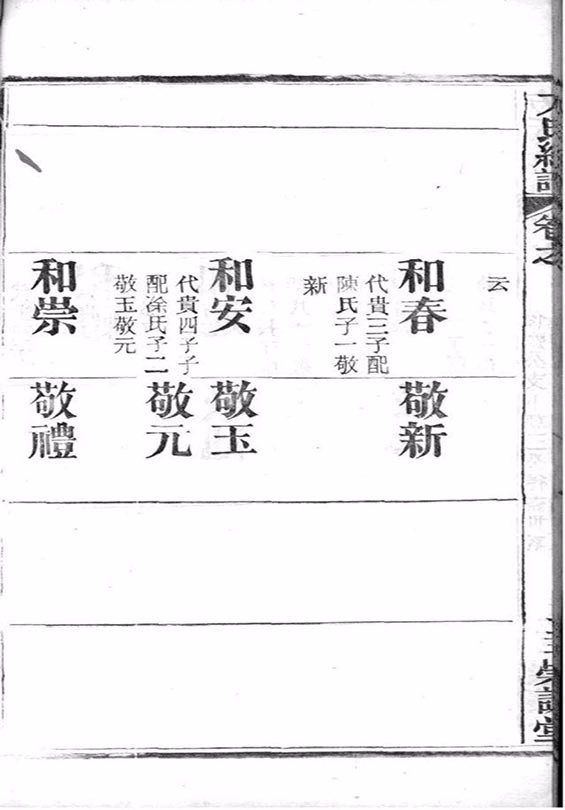 卷之
云
和春
代貴三子配
陳氏子一敬
新
和安
代貴四子子
配涂氏子二
敬玉敬元
和崇
敬新
敬玉
敬元
敬禮